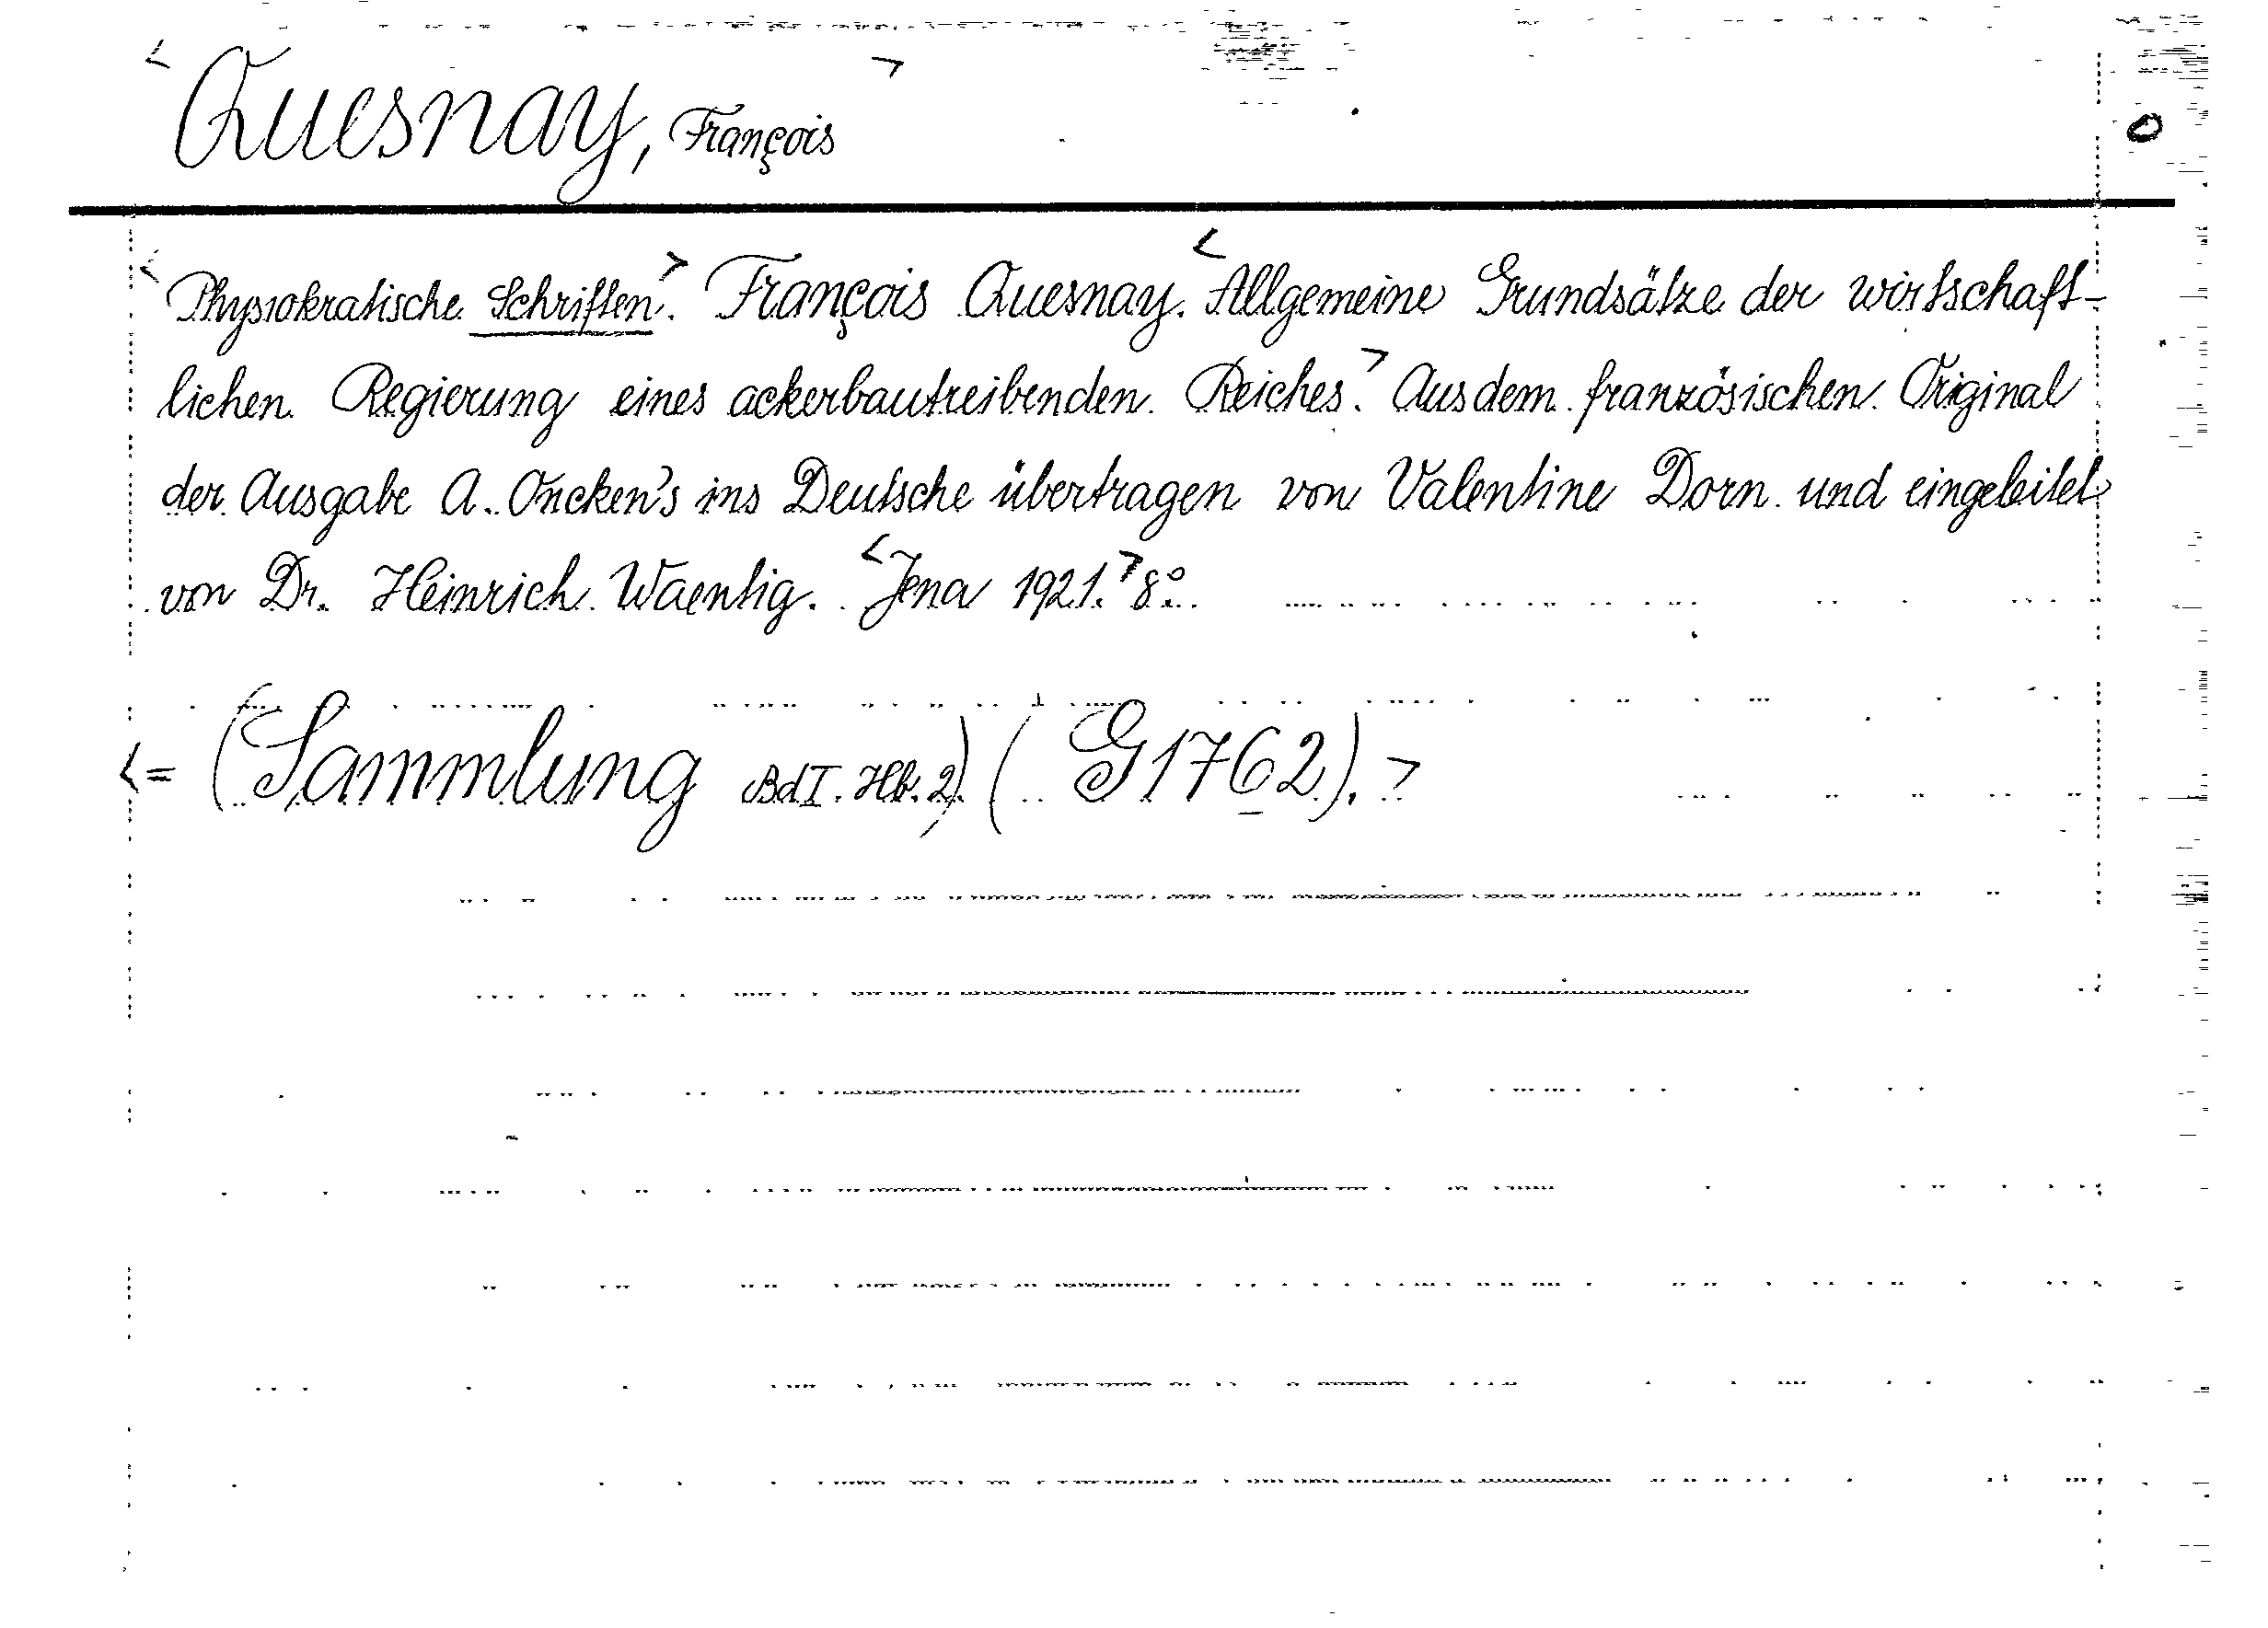 <Quesnay, François>
<Physiokratische Schriften>. François Quesnay. <Allgemeine Grundsätze der wirtschaft-
lichen Regierung eines ackerbautreibenden Reiches.> Aus dem französischen Original
der Ausgabe A. Oncken's ins Deutsche übertragen von Valentine Dorn und eingeleitet
von Dr. Heinrich Waentig. <Jena 1921.> 8°.
<= (Sammlung Bd I. Hb. 2) (G1762).>